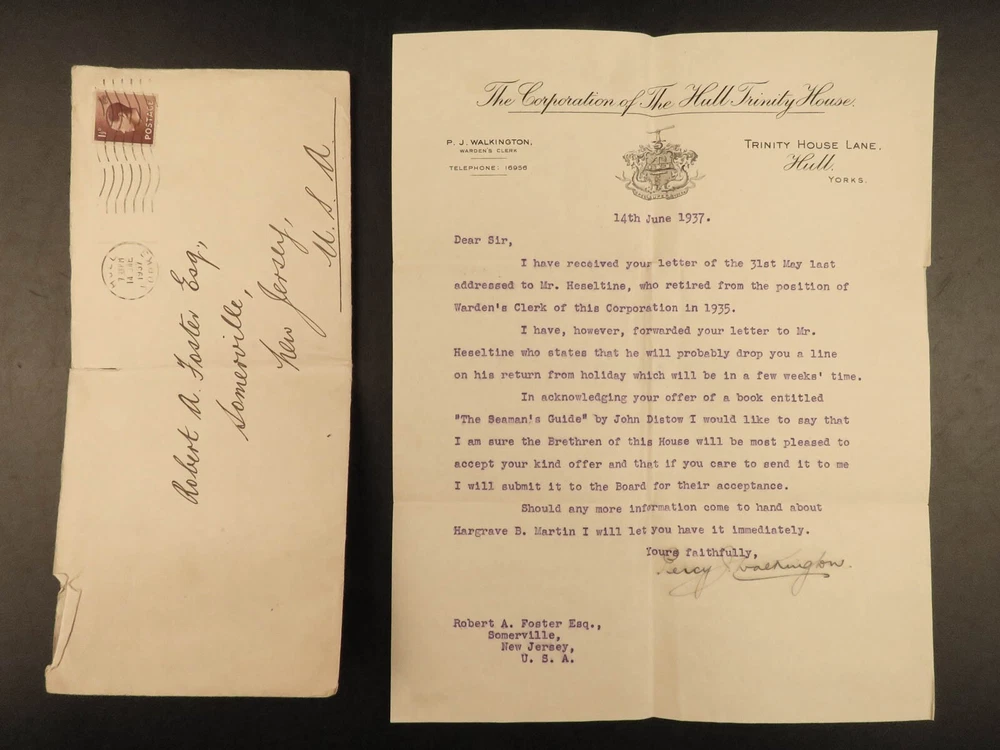 1½
POSTAGE
HULL
14 JE
1937
Robert A. Foster Esq.,
Somerville,
New Jersey,
U. S. A.
The Corporation of The Hull Trinity House.
P. J. WALKINGTON,
WARDEN'S CLERK
TELEPHONE: 16956
TRINITY HOUSE LANE,
Hull.
YORKS.
14th June 1937.
Dear Sir,
I have received your letter of the 31st May last
addressed to Mr. Heseltine, who retired from the position of
Warden's Clerk of this Corporation in 1935.
I have, however, forwarded your letter to Mr.
Heseltine who states that he will probably drop you a line
on his return from holiday which will be in a few weeks' time.
In acknowledging your offer of a book entitled
"The Seaman's Guide" by John Distow I would like to say that
I am sure the Brethren of this House will be most pleased to
accept your kind offer and that if you care to send it to me
I will submit it to the Board for their acceptance.
Should any more information come to hand about
Hargrave B. Martin I will let you have it immediately.
Yours faithfully,
Percy J Walkington.
Robert A. Foster Esq.,
Somerville,
New Jersey,
U. S. A.